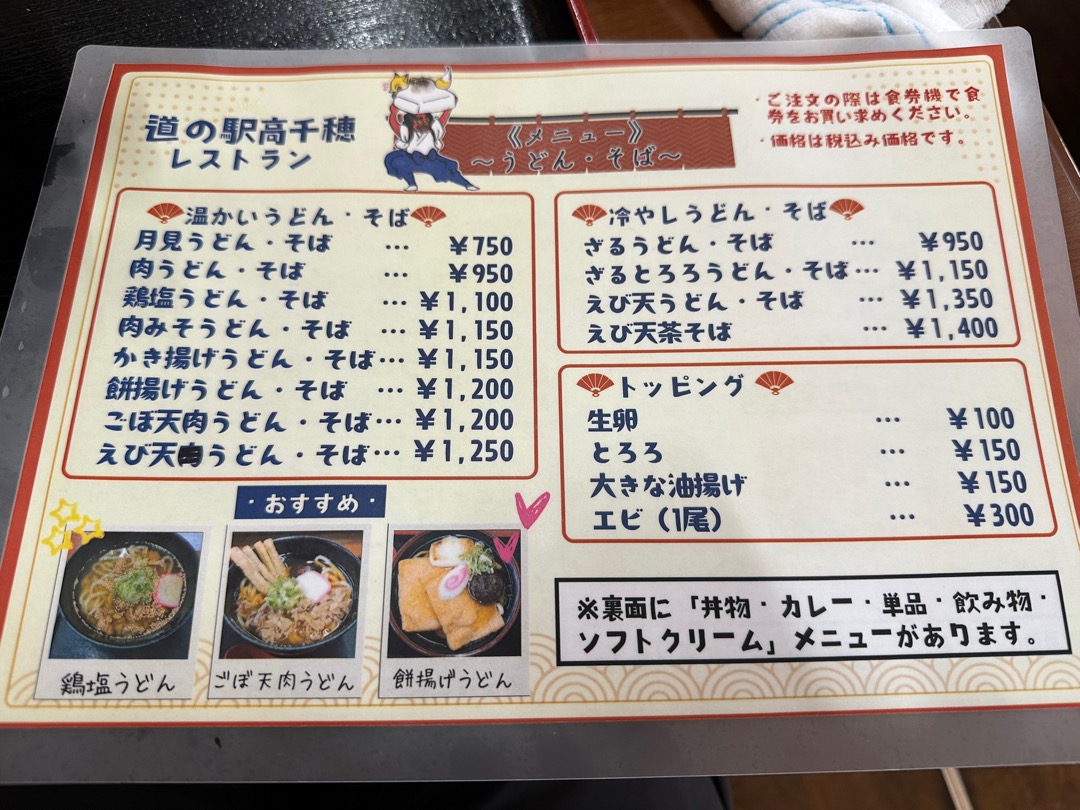 道の駅高千穂
レストラン
《メニュー》
～うどん・そば～
・ご注文の際は食券機で食
券をお買い求めください。
・価格は税込み価格です。
温かいうどん・そば
月見うどん・そば … ¥750
肉うどん・そば … ¥950
鶏塩うどん・そば … ¥1,100
肉みそうどん・そば … ¥1,150
かき揚げうどん・そば… ¥1,150
餅揚げうどん・そば … ¥1,200
ごぼ天肉うどん・そば… ¥1,200
えび天うどん・そば… ¥1,250
冷やしうどん・そば
ざるうどん・そば … ¥950
ざるとろろうどん・そば… ¥1,150
えび天うどん・そば … ¥1,350
えび天茶そば … ¥1,400
トッピング
生卵 … ¥100
とろろ … ¥150
大きな油揚げ … ¥150
エビ（1尾） … ¥300
・おすすめ・
鶏塩うどん
ごぼ天肉うどん
餅揚げうどん
※裏面に「丼物・カレー・単品・飲み物・
ソフトクリーム」メニューがあります。